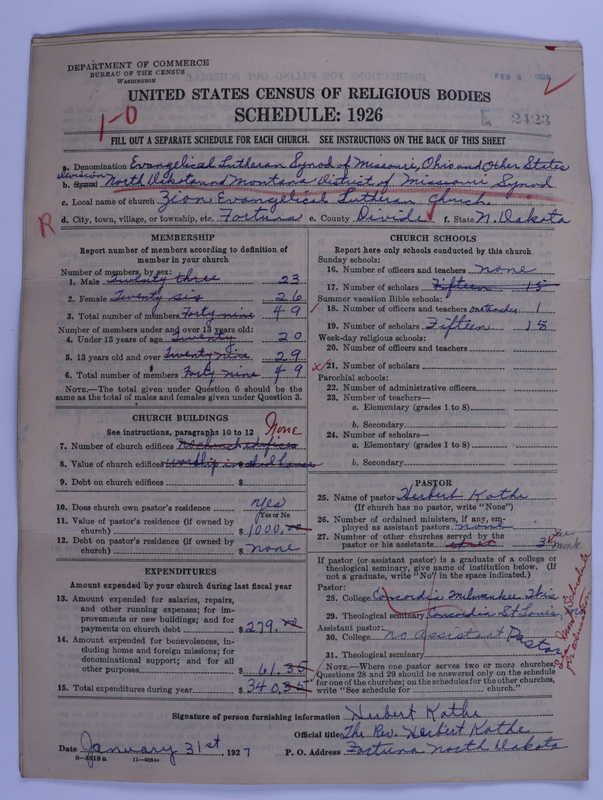 DEPARTMENT OF COMMERCE
BUREAU OF THE CENSUS
WASHINGTON
UNITED STATES CENSUS OF RELIGIOUS BODIES
SCHEDULE: 1926
1-0
FILL OUT A SEPARATE SCHEDULE FOR EACH CHURCH. SEE INSTRUCTIONS ON THE BACK OF THIS SHEET
a. Denomination Evangelical Lutheran Synod of Missouri, Ohio and Other States
Division
b. Synod North Dakota and Montana District of Missouri Synod
c. Local name of church Zion Evangelical Lutheran Church
R
d. City, town, village, or township, etc. Fortuna e. County Divide f. State N. Dakota
MEMBERSHIP
Report number of members according to definition of member in your church
Number of members, by sex:
1. Male Twenty three 23
2. Female Twenty six 26
3. Total number of members Forty nine 49
Number of members under and over 13 years old:
4. Under 13 years of age Twenty 20
5. 13 years old and over Twenty nine 29
6. Total number of members Forty nine 49
NOTE.—The total given under Question 6 should be the same as the total of males and females given under Question 3.
CHURCH BUILDINGS
See instructions, paragraphs 10 to 12 None
7. Number of church edifices No church edifices
8. Value of church edifices worship in school house
9. Debt on church edifices $
10. Does church own pastor's residence Yes
Yes or No
11. Value of pastor's residence (if owned by church) $ 1000.
12. Debt on pastor's residence (if owned by church) $ none
EXPENDITURES
Amount expended by your church during last fiscal year
13. Amount expended for salaries, repairs, and other running expenses; for improvements or new buildings; and for payments on church debt $ 279.
14. Amount expended for benevolences, including home and foreign missions; for denominational support; and for all other purposes 61.35
15. Total expenditures during year $ 340.35
CHURCH SCHOOLS
Report here only schools conducted by this church
Sunday schools:
16. Number of officers and teachers none
17. Number of scholars Fifteen 15
Summer vacation Bible schools:
18. Number of officers and teachers one teacher 1
19. Number of scholars Fifteen 15
Week-day religious schools:
20. Number of officers and teachers
21. Number of scholars
Parochial schools:
22. Number of administrative officers
23. Number of teachers—
a. Elementary (grades 1 to 8)
b. Secondary
24. Number of scholars—
a. Elementary (grades 1 to 8)
b. Secondary
PASTOR
25. Name of pastor Herbert Kathe
(If church has no pastor, write "None")
26. Number of ordained ministers, if any, employed as assistant pastors none
27. Number of other churches served by the pastor or his assistants three 3
If pastor (or assistant pastor) is a graduate of a college or theological seminary, give name of institution below. (If not a graduate, write "No" in the space indicated.)
Pastor:
28. College Concordia Milwaukee Wis
29. Theological seminary Concordia St. Louis,
Assistant pastor:
30. College no assistant Pastor
31. Theological seminary
NOTE.—Where one pastor serves two or more churches, Questions 28 and 29 should be answered only on the schedule for one of the churches; on the schedules for the other churches, write "See schedule for church."
Signature of person furnishing information Herbert Kathe
Official title The Rev. Herbert Kathe
Date January 31st, 1927 P. O. Address Fortuna North Dakota